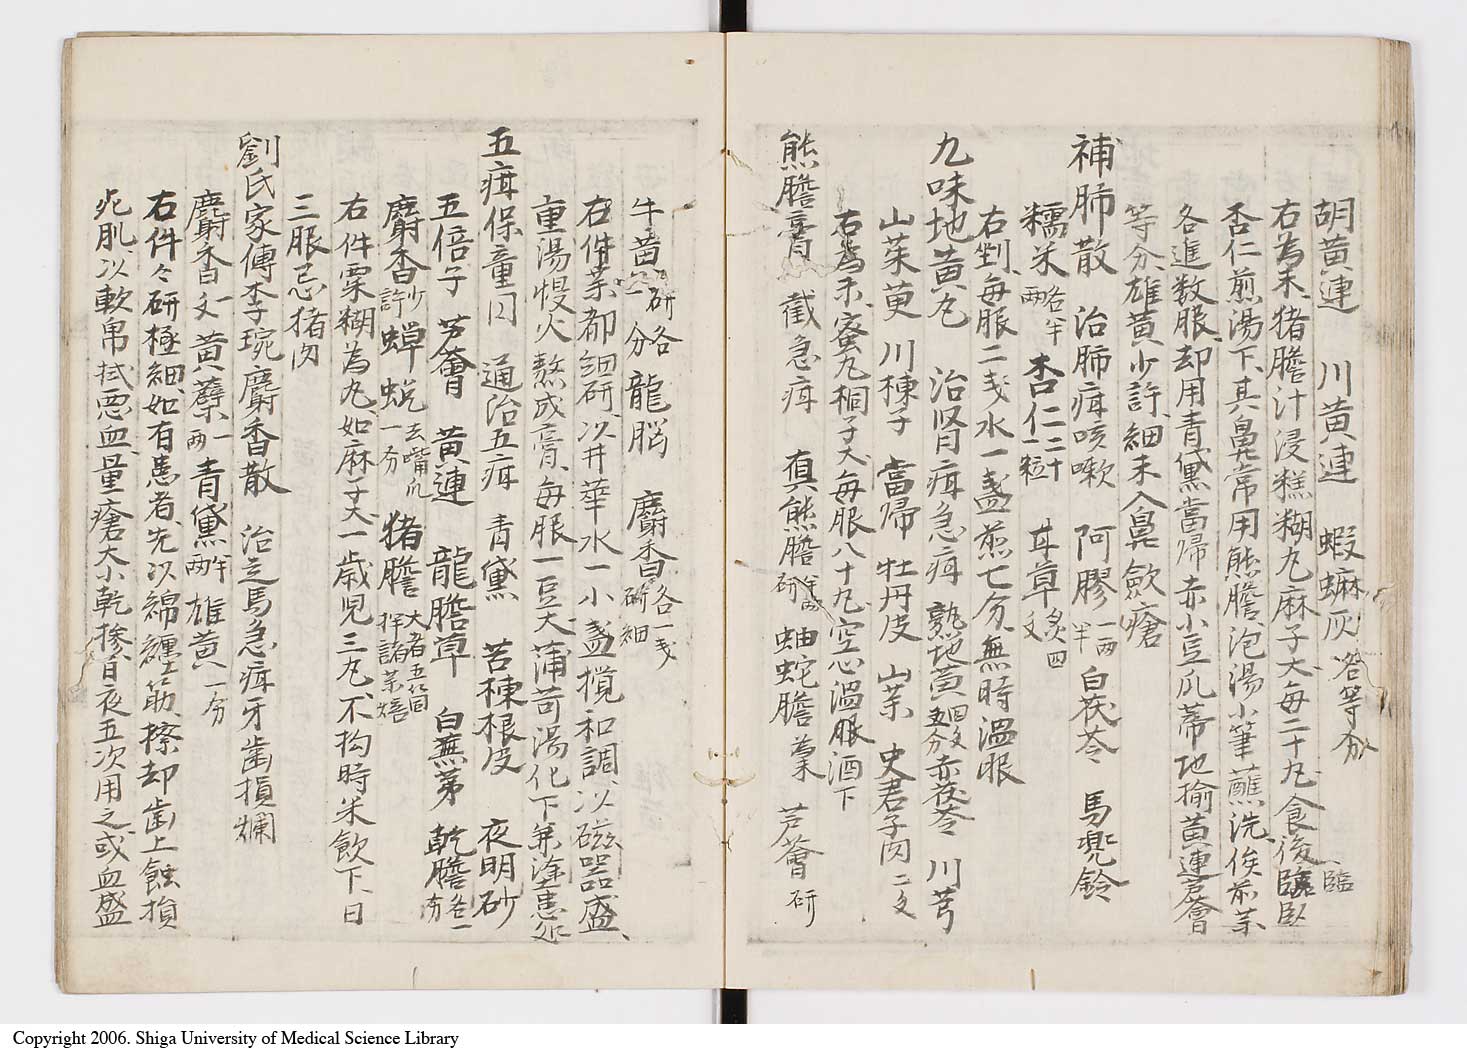 胡黄連 川黄連 蝦蟆灰 各等分
右為末、猪膽汁浸糕糊丸麻子大每二十丸食後臨臥
臨
杏仁煎湯下、其鼻常用熊膽、泡湯小筆蘸洗、俟前藥
各進数服却用青黛當帰赤小豆瓜蒂地楡黄連蘆薈
等分雄黄少許細末入鼻歛瘡
補肺散 治肺疳咳嗽 阿膠一両半 白茯苓 馬兜鈴
糯米各半両 杏仁二十一粒 甘草炙四文
右剉、每服二戔水一盞煎七分、無時温服
九味地黄丸 治肾疳急疳 熟地黄四文五分 赤茯苓 川芎
山茱萸 川楝子 當帰 牡丹皮 山茱 史君子肉二文
右為末、蜜丸桐子大每服八十丸、空心温服酒下
熊膽膏 截急疳 真熊膽半両研 蚺蛇膽 藁 芦薈研
牛黄研各一分 龍脳 麝香各一戔研細
右件藥都細研、以井華水一小盞攪和調、以磁器盛、
重湯慢火熬成膏、每服一豆大蒲荷湯化下兼塗患処
五疳保童円 通治五疳 青黛 苦棟根皮 夜明砂
五倍子 芳薈 黄連 龍膽草 白蕪荑 乾膽各一分
麝香少許 蟬蛻去嘴爪一分 猪膽大者五个同拌諸藥
右件粟糊為丸、如麻子大、一歳児三丸、不拘時米飲下、日
三服忌猪肉
劉氏家傳李琬麝香散 治走馬急疳牙歯損爛
麝香一文 黄蘗一両 青黛半両 雄黄一分
右件々研極細如有患者、先以綿纏筯、擦却歯上蝕損
死肌、以軟帛拭悪血、量瘡大小乾摻日夜五次用之或血盛
Copyright 2006. Shiga University of Medical Science Library